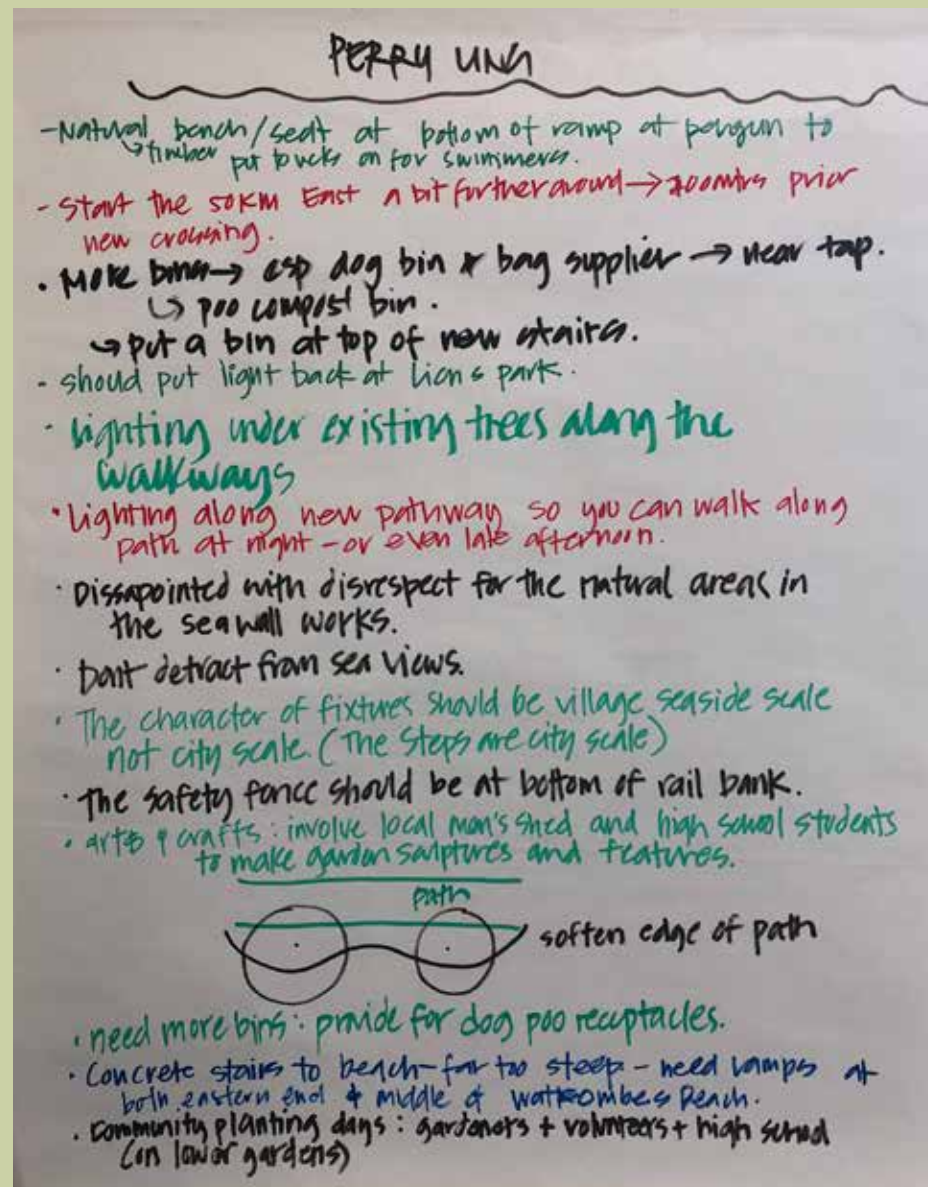 PERRY UNG
- Natural bench/seat at bottom of ramp at penguin to
↳ timber put bucks on for swimmers.
- Start the 50KM East a bit further around → 200mtrs prior
new crossing.
· More bins → esp dog bin & bag supplier → near tap.
↳ poo compost bin.
↳ put a bin at top of new stairs.
- should put light back at Lions park.
· Lighting under existing trees along the
walkways
· Lighting along new pathway so you can walk along
path at night - or even late afternoon.
· Dissapointed with disrespect for the natural areas in
the seawall works.
· Dont detract from sea views.
· The character of fixtures should be village seaside scale
not city scale. (The steps are city scale)
· The safety fence should be at bottom of rail bank.
· arts & crafts : involve local men's shed and high school students
to make garden sculptures and features.
path
soften edge of path
· need more bins : provide for dog poo receptacles.
· Concrete stairs to beach - far too steep - need ramps at
both eastern end & middle of Beach.
· Community planting days : gardeners + volunteers + high school
(on lower gardens)